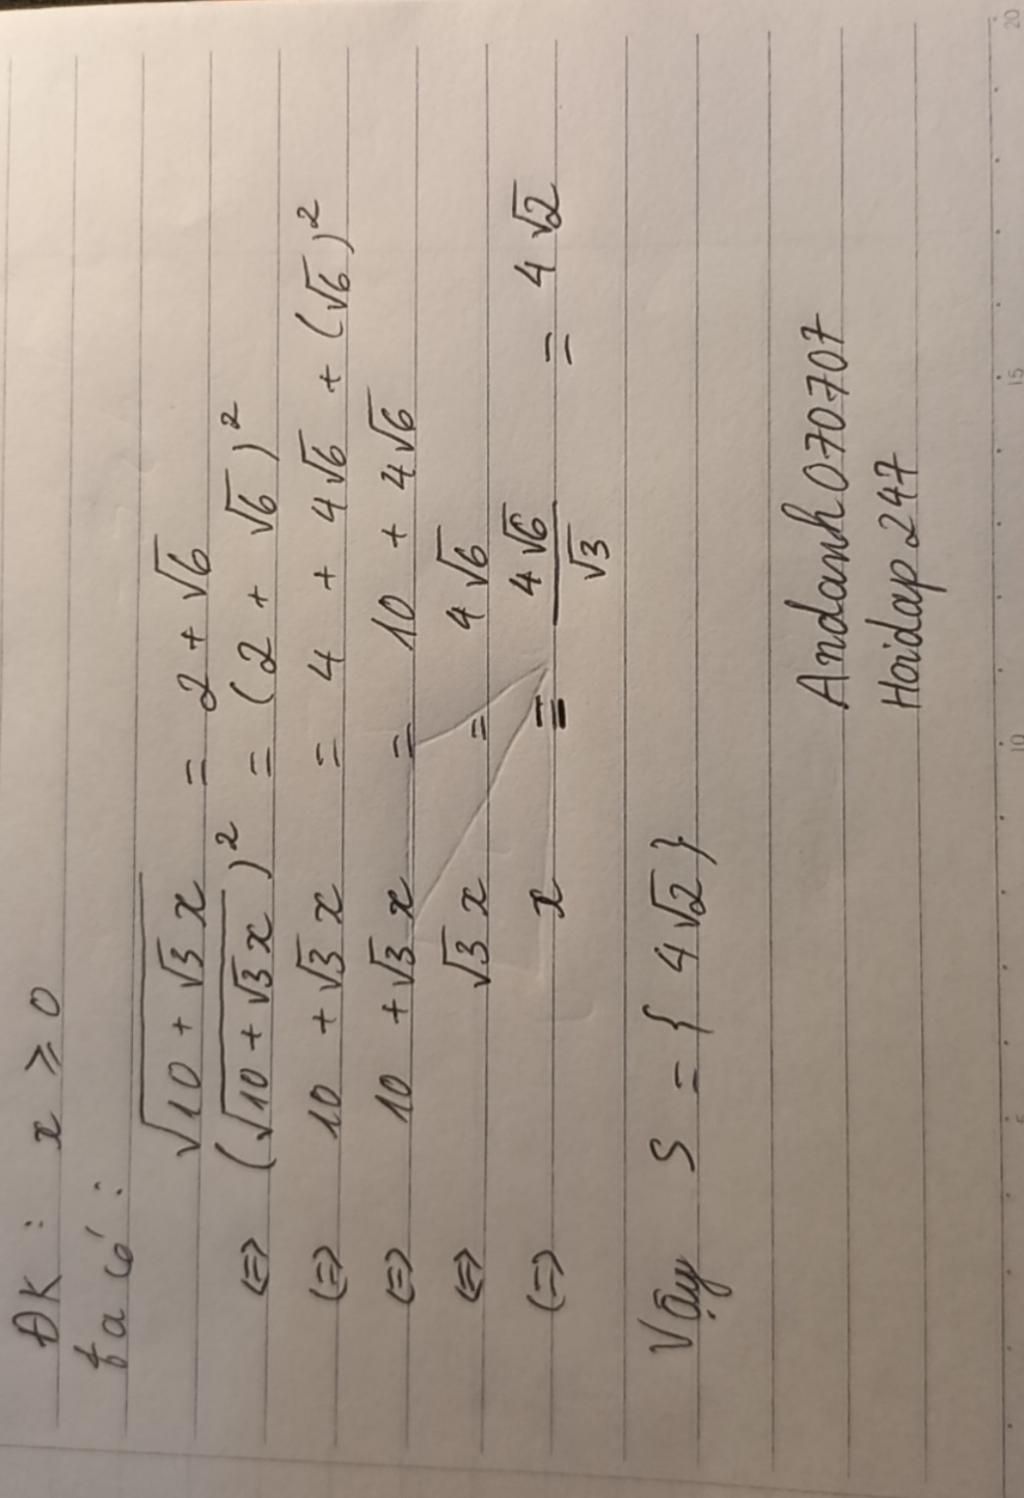 ĐK : x ≥ 0
Ta có :
√(10 + √3 x) = 2 + √6
⇔ (√(10 + √3 x))² = (2 + √6)²
⇔ 10 + √3 x = 4 + 4√6 + (√6)²
⇔ 10 + √3 x = 10 + 4√6
⇔ √3 x = 4√6
⇔ x = 4√6/√3 = 4√2
Vậy S = { 4√2 }
Andanh070707
Hoidap247
20
15
10
5